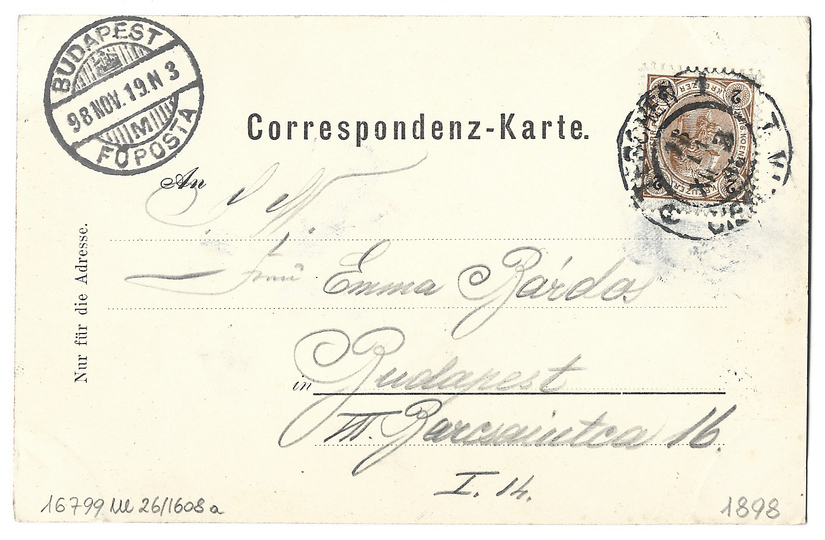 BUDAPEST
98 NOV. 19. N 3
M
FŐPOSTA
2 KREUZER 2
Correspondenz-Karte.
An
Frau Emma Bárdos
in Budapest
III. Barcsaiutca 16.
I. 14.
Nur für die Adresse.
16799
26/1608 a
1898